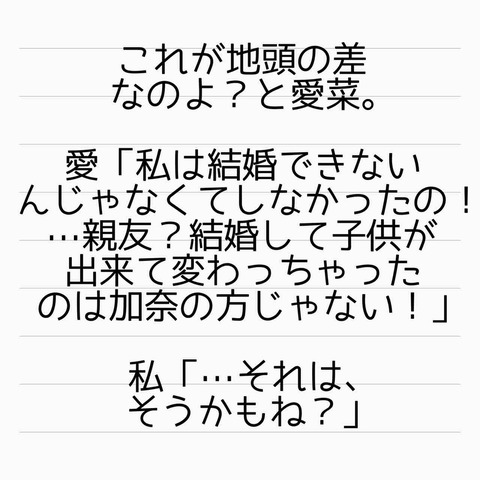 これが地頭の差
なのよ？と愛菜。
愛「私は結婚できない
んじゃなくてしなかったの！
…親友？結婚して子供が
出来て変わっちゃった
のは加奈の方じゃない！」
私「…それは、
そうかもね？」